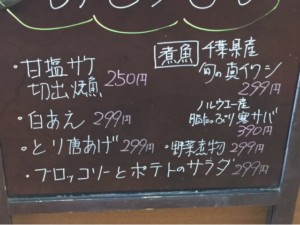 ・甘塩サケ
切出し焼魚 250円
・白あえ 299円
・とり唐あげ 299円
煮魚 千葉県産
旬の真イワシ
299円
ノルウェー産
脂たっぷり 実サバ
390円
・野菜煮物 299円
・ブロッコリーとポテトのサラダ 299円